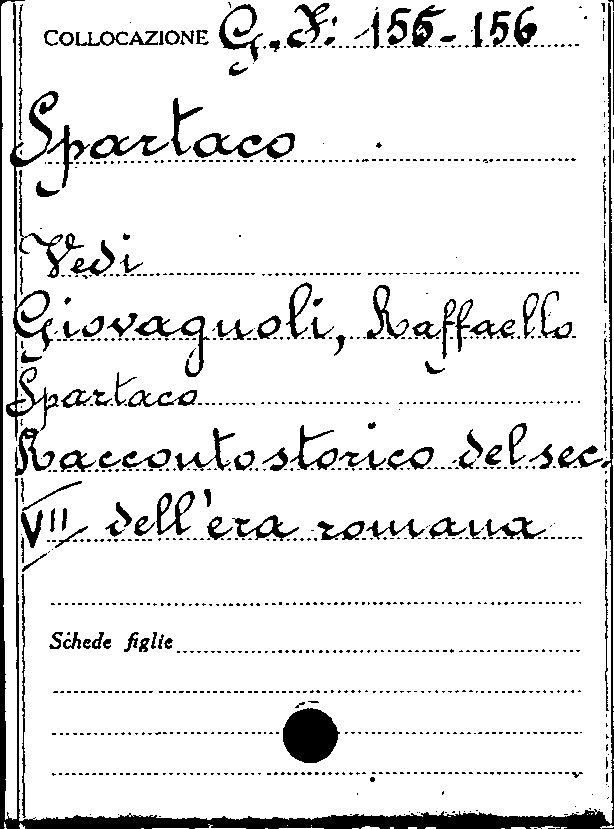 COLLOCAZIONE G. F: 155-156
Spartaco
Vedi
Giovagnoli, Raffaello
Spartaco
Racconto storico del sec.
VII dell'era romana
Schede figlie